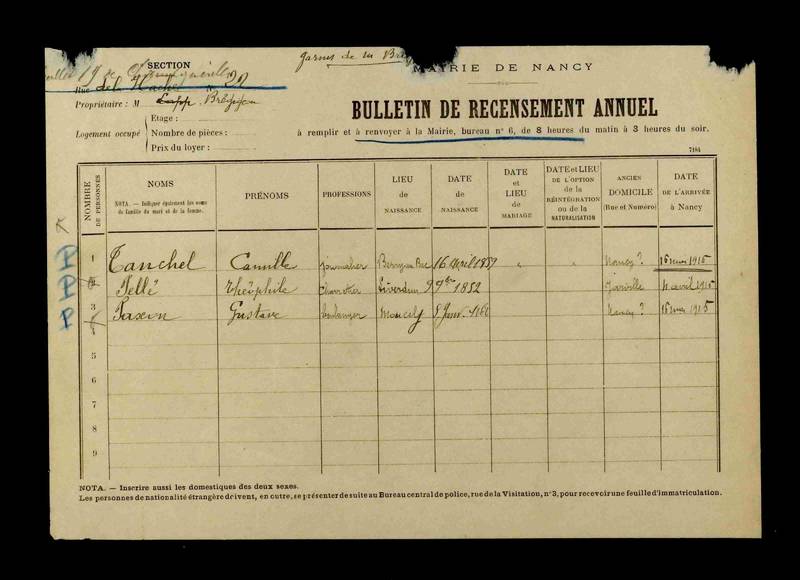 garnis de la
SECTION
MAIRIE DE NANCY
Rue de la Hache N° 22
Propriétaire : M
BULLETIN DE RECENSEMENT ANNUEL
à remplir et à renvoyer à la Mairie, bureau n° 6, de 8 heures du matin à 3 heures du soir.
Logement occupé
Etage :
Nombre de pièces :
Prix du loyer :
7184
NOMBRE DE PERSONNES
NOMS
NOTA. — Indiquer également les noms de famille du mari et de la femme.
PRÉNOMS
PROFESSIONS
LIEU de NAISSANCE
DATE de NAISSANCE
DATE et LIEU de MARIAGE
DATE et LIEU DE L'OPTION de la RÉINTÉGRATION ou de la NATURALISATION
ANCIEN DOMICILE (Rue et Numéro)
DATE DE L'ARRIVÉE à Nancy
1 Tanchel Camille journalier Berry au Bac 16 Avril 1859 " " Nancy ? 15 mars 1915
2 Pellé Théophile Charretier Liverdun 9 9bre 1852 Joinville 11 avril 1915
3 Gustave boulanger 8 Janv. Nancy ? 15 mars 1915
4
5
6
7
8
9
NOTA. — Inscrire aussi les domestiques des deux sexes.
Les personnes de nationalité étrangère doivent, en outre, se présenter de suite au Bureau central de police, rue de la Visitation, n° 3, pour recevoir une feuille d'immatriculation.